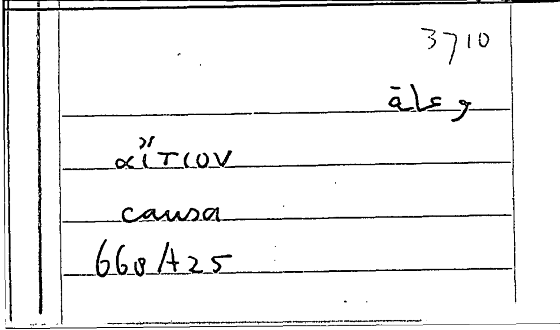 3710
وعلة
αἴτιον
causa
668A25